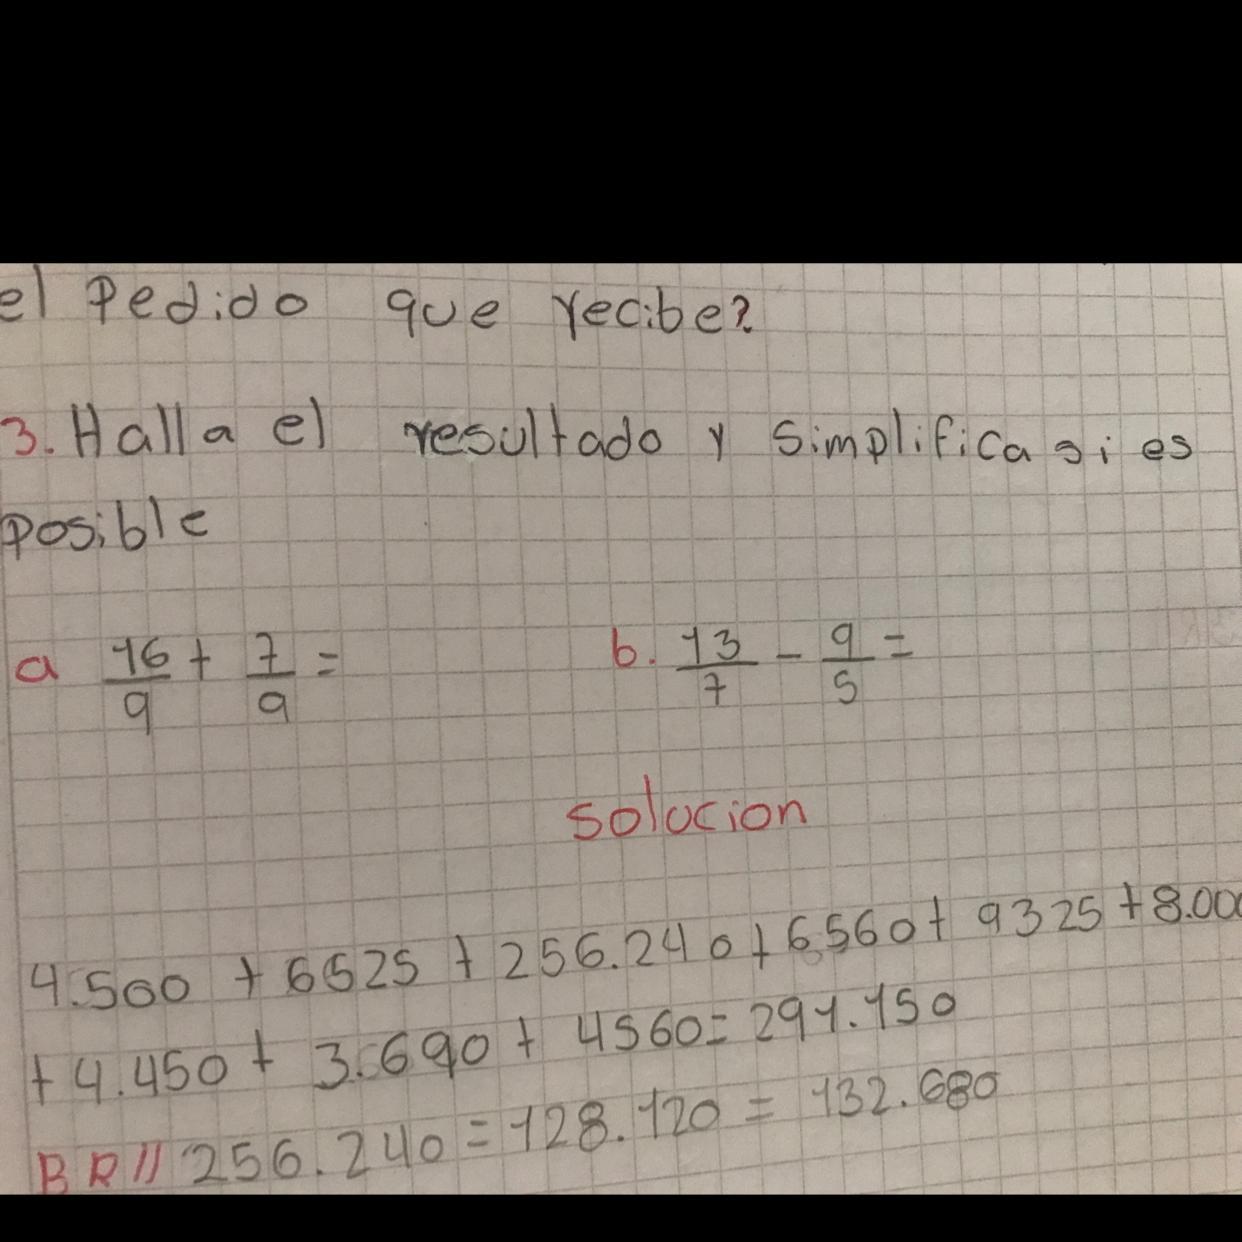 el Pedido que recibe?
3. Halla el resultado y simplifica si es
posible
a 16/9 + 7/9 = b. 13/7 - 9/5 =
solucion
4.500 + 6525 + 256.240 + 6560 + 9325 + 8.000
+ 4.450 + 3.690 + 4560 = 291.150
B R// 256.240 = 128.120 = 132.680